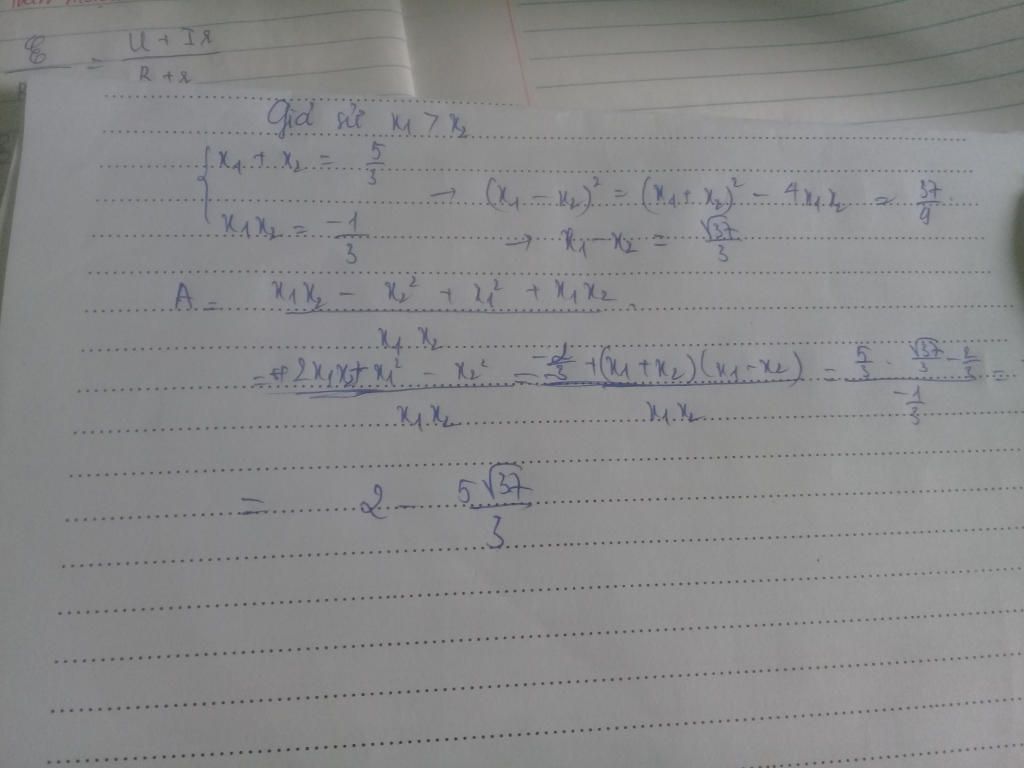 E/R = (U + Ir)/(R + r)
Giả sử x₁ > x₂
{ x₁ + x₂ = 5/3
→ (x₁ - x₂)² = (x₁ + x₂)² - 4x₁x₂ = 37/9
x₁x₂ = -1/3 → x₁ - x₂ = √37/3
A = (x₁x₂ - x₂² + x₁² + x₁x₂)/(x₁ x₂)
= (2x₁x₂ + x₁² - x₂²)/(x₁.x₂) = (-2/3 + (x₁ + x₂)(x₁ - x₂))/(x₁.x₂) = (5/3 . √37/3 - 2/3)/(-1/3) =
= 2 - 5√37/3